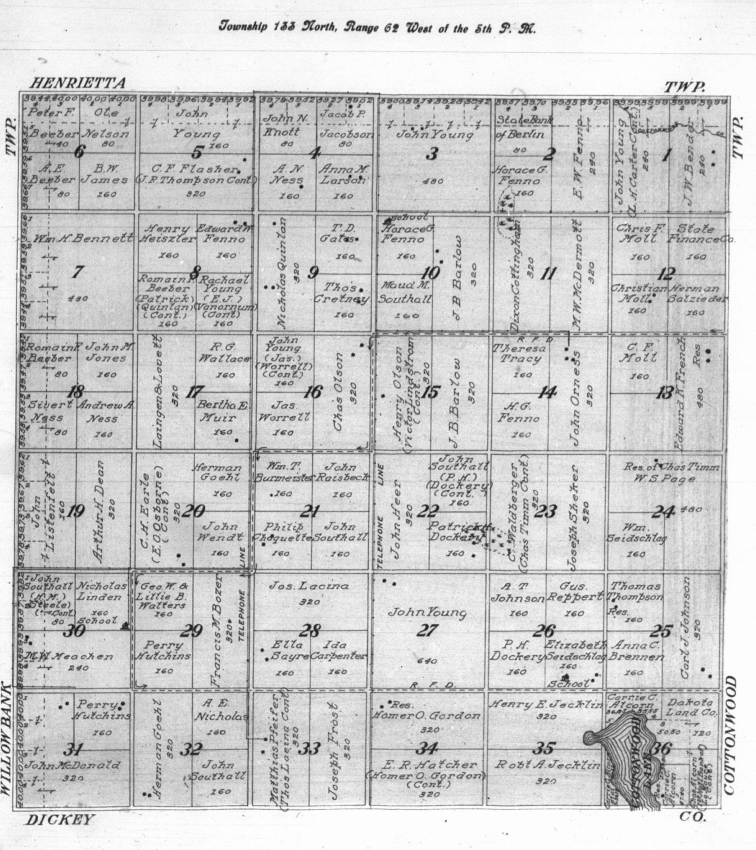 Township 133 North, Range 62 West of the 5th P. M.
HENRIETTA
TWP.
TWP.
TWP.
Peter F.
Beeber
80
Ole
Nelson
80
6
A.E.
Beeber
80
B.W.
James
160
John
Young
160
5
C. F. Flasher
(J.R. Thompson Cont)
320
John N.
Knott
80
Jacob P.
Jacobson
80
4
A. N.
Ness
160
Anna M.
Larson
160
John Young
3
480
State Bank
of Berlin
80
2
Horace G.
Fenno
160
E.W. Fenno
240
John Young
(A. H. Carter Cont.)
240
1
J.W. Bender
240
Wm. H. Bennett
7
480
Henry
Heiszler
160
Edward W.
Fenno
160
8
Romain F.
Beeber
(Patrick)
(Quinlan)
(Cont.)
160
Rachael
Young
(E.J.)
(Vanornum)
(Cont)
160
Nicholas Quinlan
320
9
T. D.
Gates
160
Tho's
Gretney
160
School
Horace G.
Fenno
160
10
Maud M.
Southall
160
J B Barlow
320
Dixon Cottingham
320
11
M.W. McDermott
320
Chris F.
Moll
160
State
Finance Co.
160
12
Christian
Moll
160
Herman
Salzieder
160
Romain F.
Beeber
80
John M.
Jones
160
18
Sivert
Ness
80
Andrew A.
Ness
160
Laingen & Lovett
320
17
R.G.
Wallace
160
Bertha E.
Muir
160
John
Young
(Jas.)
(Worrell)
(Cont)
160
16
Jas
Worrell
160
Chas Olson
320
Henry Olson
(Victor Lindstrom
Cont.)
320
15
J.B Barlow
320
R. F. D
Theresa
Tracy
160
14
H.G.
Fenno
160
John Orness
320
C. F.
Moll
160
13
Edward R. French
480
Res
John
Listenfelt
160
19
Arthur H. Dean
320
C.H. Eorie
(E.O. Osborne)
Cont
320
20
Herman
Goehl
160
John
Wendt
160
LINE
TELEPHONE
Wm. T.
Burmeister
160
John
Raisbeck
160
21
Philip
Choquette
160
John
Southall
160
TELEPHONE LINE
John Heer
320
22
John
Southall
(P.H.)
(Dockery)
(Cont.)
160
Patrick H
Dockery
160
C. Waldberger
(Chas Timm Cont)
320
23
Joseph Sheker
320
Res. of Chas Timm
W.S. Page
480
24
Wm.
Seidschlag
160
John
Southall
(H.M.)
(Steele)
(Cont)
80
Nicholas
Linden
160
School
30
M.W. Meachen
240
Geo. W. &
Lillie B.
Walters
160
29
Perry
Hutchins
160
Francis M. Bozer
320
Jos. Lacina
320
28
Ella
Sayre
160
Ida
Carpenter
160
John Young
27
640
R. F. D
A. T
Johnson
160
Gus.
Reppert
160
26
P. H.
Dockery
160
Elizabeth
Seidschlag
160
School
Thomas
Thompson
Res.
160
25
Anna C.
Brennen
160
Carl J. Johnson
320
Perry
Hutchins
160
31
John McDonald
320
Herman Goehl
320
32
A. E.
Nicholas
160
John
Southall
160
Matthias Pfeifer
(Thos Lacina Cont)
320
33
Joseph Frost
320
Res.
Homer O. Gordon
320
34
E. R. Hatcher
(Homer O. Gordon)
(Cont.)
320
Henry E. Jecklin
320
35
Robt A. Jecklin
320
Carrie C.
Alcorn
Dakota
Land Co.
120
36
COTTONWOOD
LAKE
WILLOW BANK
COTTONWOOD
DICKEY
CO.